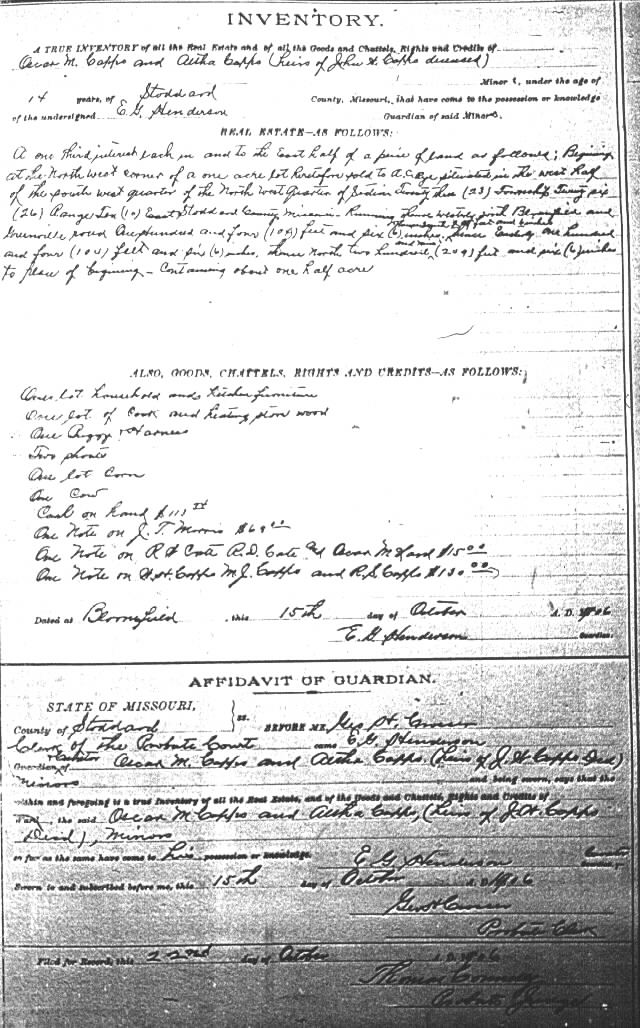 INVENTORY.
A TRUE INVENTORY of all the Real Estate and of all the Goods and Chattels, Rights and Credits of
Oscar M. Capps and Altha Capps (heirs of John H. Capps deceased)
Minors, under the age of
14 years, of Stoddard County, Missouri, that have come to the possession or knowledge
of the undersigned E. G. Henderson Guardian of said Minors.
REAL ESTATE—AS FOLLOWS:
A one third interest each in and to the East half of a piece of land as follows; Begining
at the North west corner of a one acre lot sold to A. C. situated in the west half
of the south west quarter of the North West Quarter of Section Twenty three (23) Township Twenty six
(26) Range Ten (10) East Stoddard County Missouri. Running thence westerly with Bloomfield and
Greenville road One Hundred and four (104) feet and six (6) inches, thence Easterly one hundred
and four (104) feet and six (6) inches, thence North two hundred and nine (209) feet and six (6) inches
to place of begining - Containing about one half acre
ALSO, GOODS, CHATTELS, RIGHTS AND CREDITS—AS FOLLOWS:
One lot household and kitchen furniture
One lot of Cook and heating stove wood
One Buggy & Harness
Two shoats
One lot Corn
One Cow
Cash on hand $113
One Note on J. T. Morris $68
One Note on R. D. Cate and Oscar $15 00
One Note on H. H. Capps M. J. Capps and R. S. Capps $130 00
Dated at Bloomfield, this 15th day of October A. D. 1906
E. G. Henderson Guardian.
AFFIDAVIT OF GUARDIAN.
STATE OF MISSOURI,
County of Stoddard ss. BEFORE ME, Geo. H.
Clerk of the Probate Court came E. G. Henderson
Guardian of Oscar M. Capps and Altha Capps, (heirs of J. H. Capps Decd)
Minors and being sworn, says that the
within and foregoing is a true Inventory of all the Real Estate, and of the Goods and Chattels, Rights and Credits of
the said Oscar M. Capps and Altha Capps, (heirs of J. H. Capps
Decd), Minors
so far as the same have come to his possession or knowledge. E. G. Henderson
Sworn to and subscribed before me, this 15th day of October A. D. 1906
Geo. H.
Probate Clerk
Filed for Record, this 22nd day of October A. D. 1906
Thomas
Probate Judge